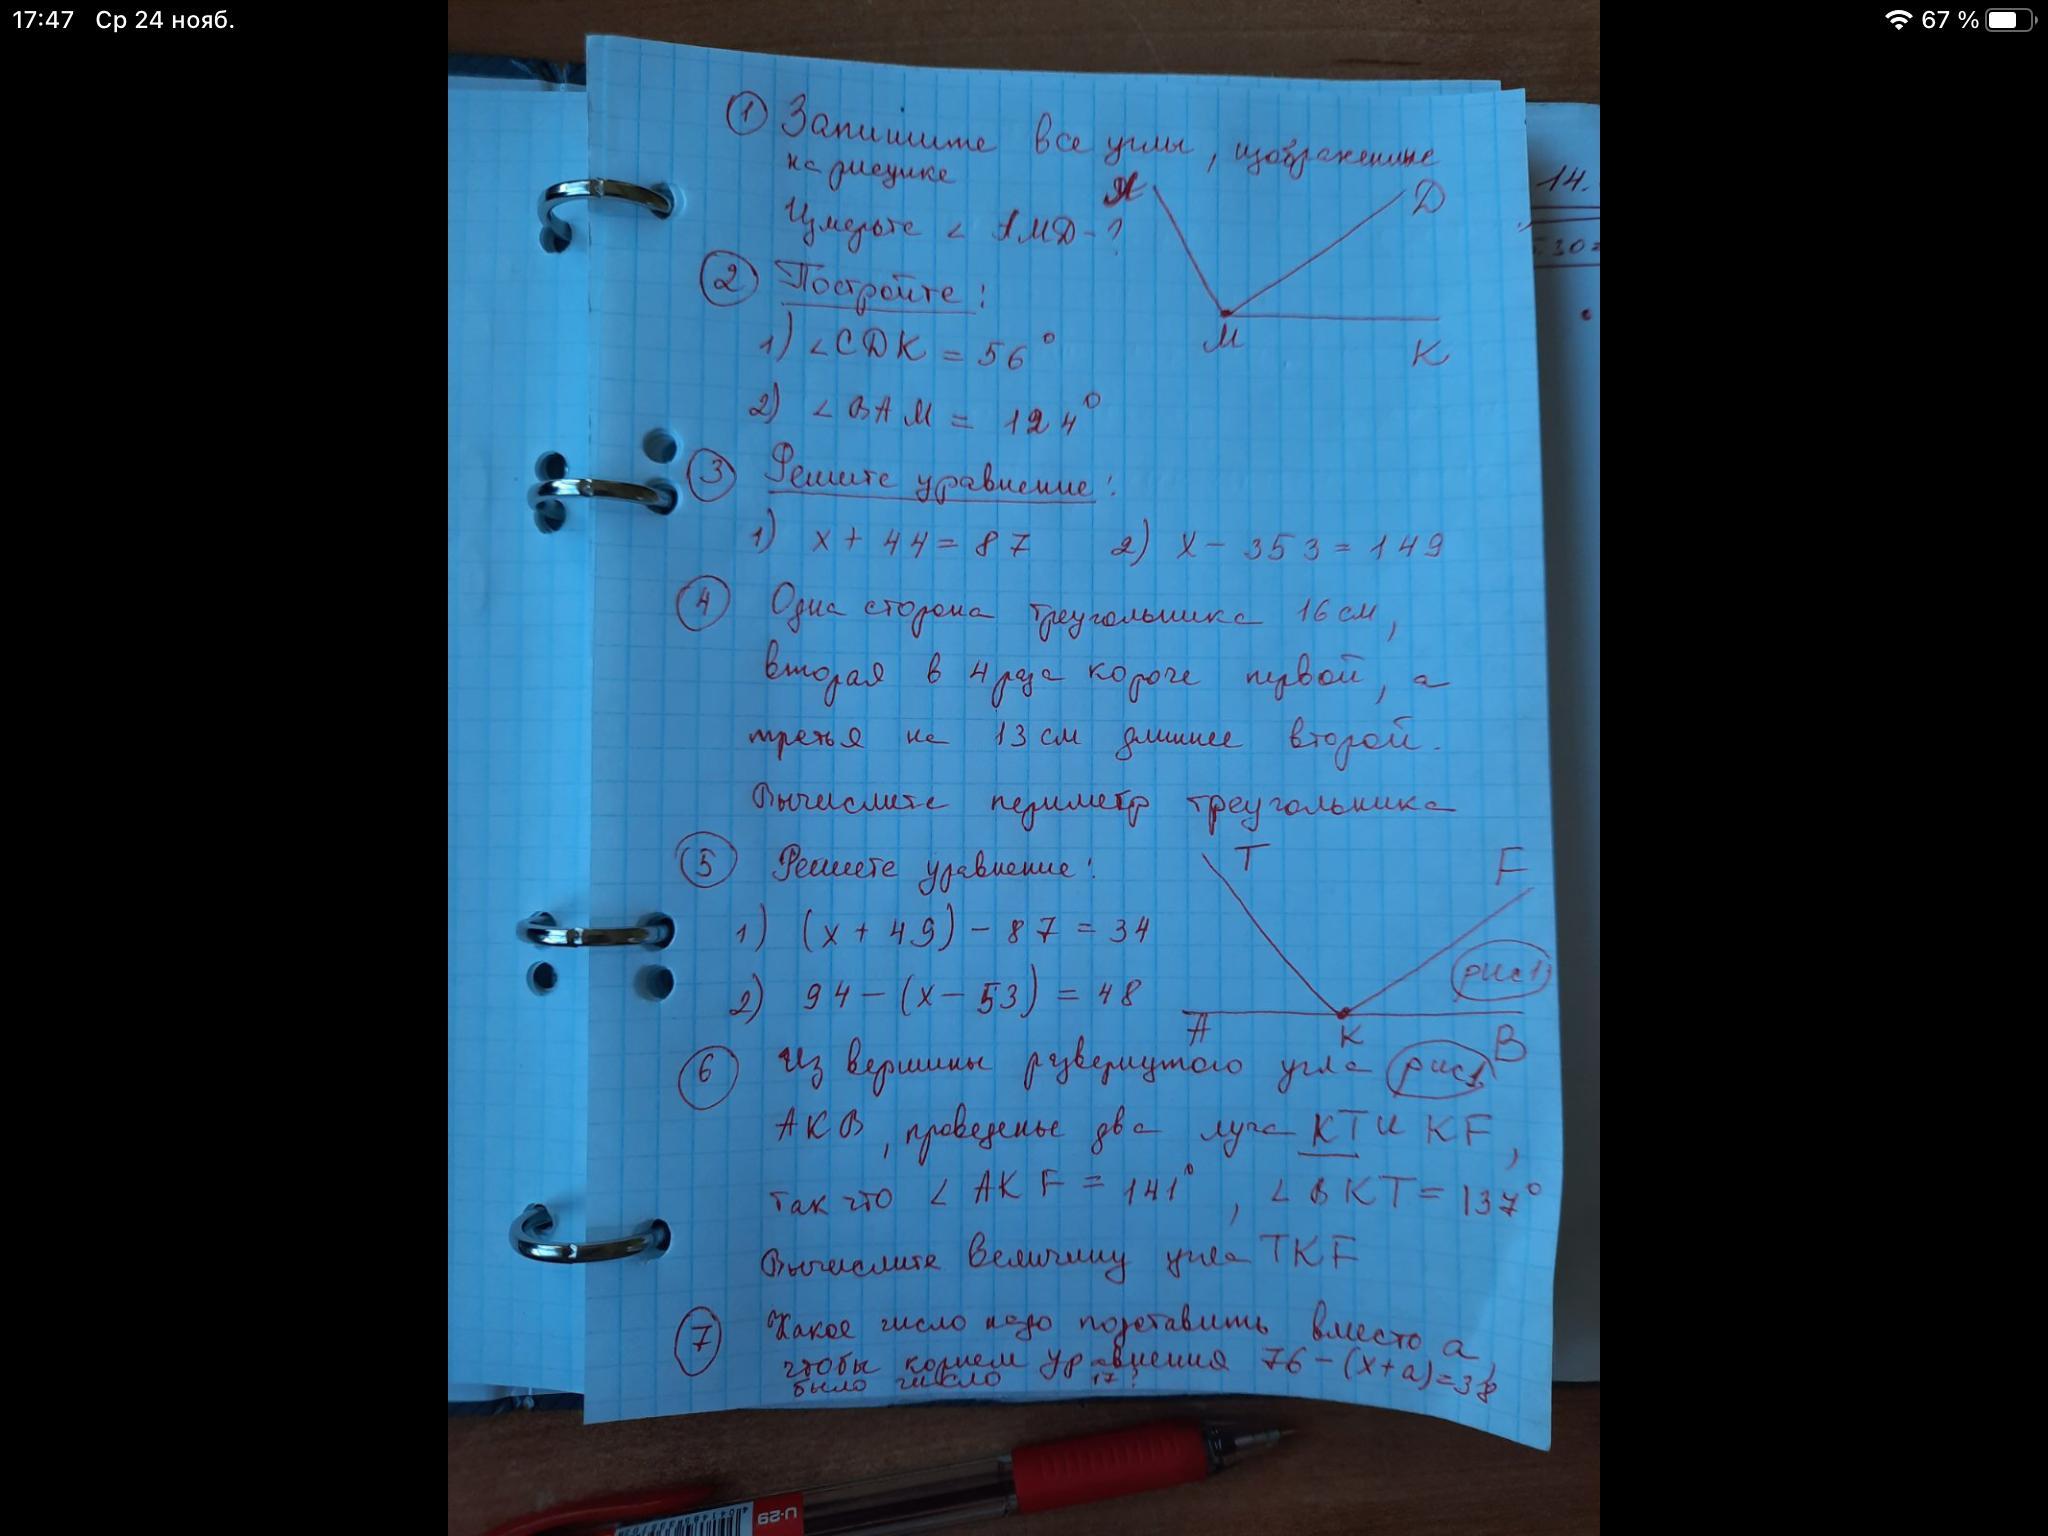 17:47 Ср 24 нояб.
67 %
① Запишите все углы, изображенные
на рисунке
Измерьте ∠ АМD - ?
D
М
К
② Постройте:
1) ∠CDK = 56°
2) ∠BAM = 124°
③ Решите уравнение:
1) x + 44 = 87 2) x - 353 = 149
④ Одна сторона треугольника 16 см,
вторая в 4 раза короче первой, а
третья на 13 см длиннее второй.
Вычислите периметр треугольника
⑤ Решите уравнение:
1) (x + 49) - 87 = 34
2) 94 - (x - 53) = 48
T
F
рис 1
A
K
B
⑥ Из вершины развернутого угла рис 1
AKB, проведены два луча KT и KF,
так что ∠ AKF = 141°, ∠ BKT = 137°
Вычислите величину угла TKF
⑦ Какое число надо подставить вместо a,
чтобы корнем уравнения 76 - (x + a) = 38
было число 17?
14.
30=
U-29